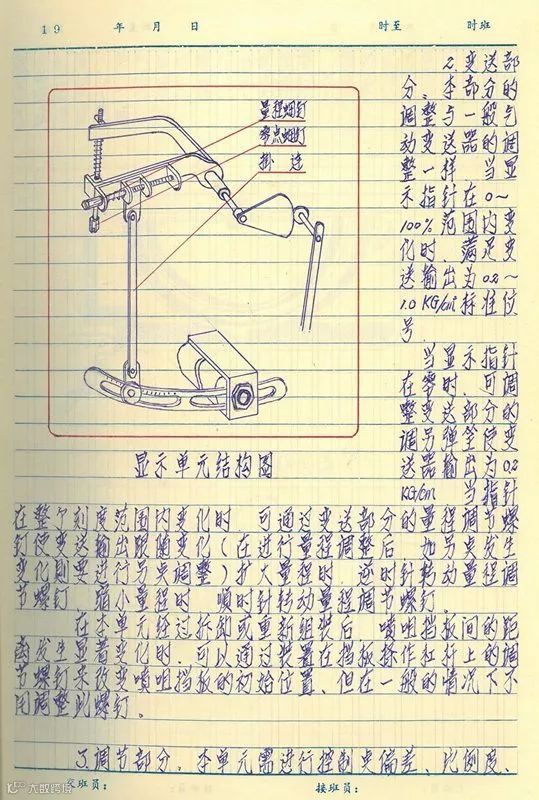 19 年 月 日 时至 时班
量程螺钉
零点螺钉
掛连
显示单元结构图
2.变送部
分、本部分的
调整与一般气
动变送器的调
整一样,当显
示指针在0～
100%范围内变
化时、满足变
送输出为0.2～
1.0 KG/cm²标准信
号
当显示指针
在零时、可调
整变送部分的
调另弹笙使变
送器输出为0.2
KG/cm 当指针
在整个刻度范围内变化时、可通过变送部分的量程调节螺
钉使变送输出跟随变化(在进行量程调整后,如另点发生
变化则要进行另点调整)扩大量程时、逆时针转动量程调
节螺钉 缩小量程时 顺时针转动量程调节螺钉。
在本单元经过拆卸或重新组装后、喷咀挡板间的距
离发生显著变化时、可以通过装置在挡板操作杠杆上的调
节螺钉来改变喷咀挡板的初始位置、但在一般的情况下不
用调整此螺钉。
3.调节部分、本单元需进行控制点偏差、比例度、
交班员: 接班员:
大数跨境